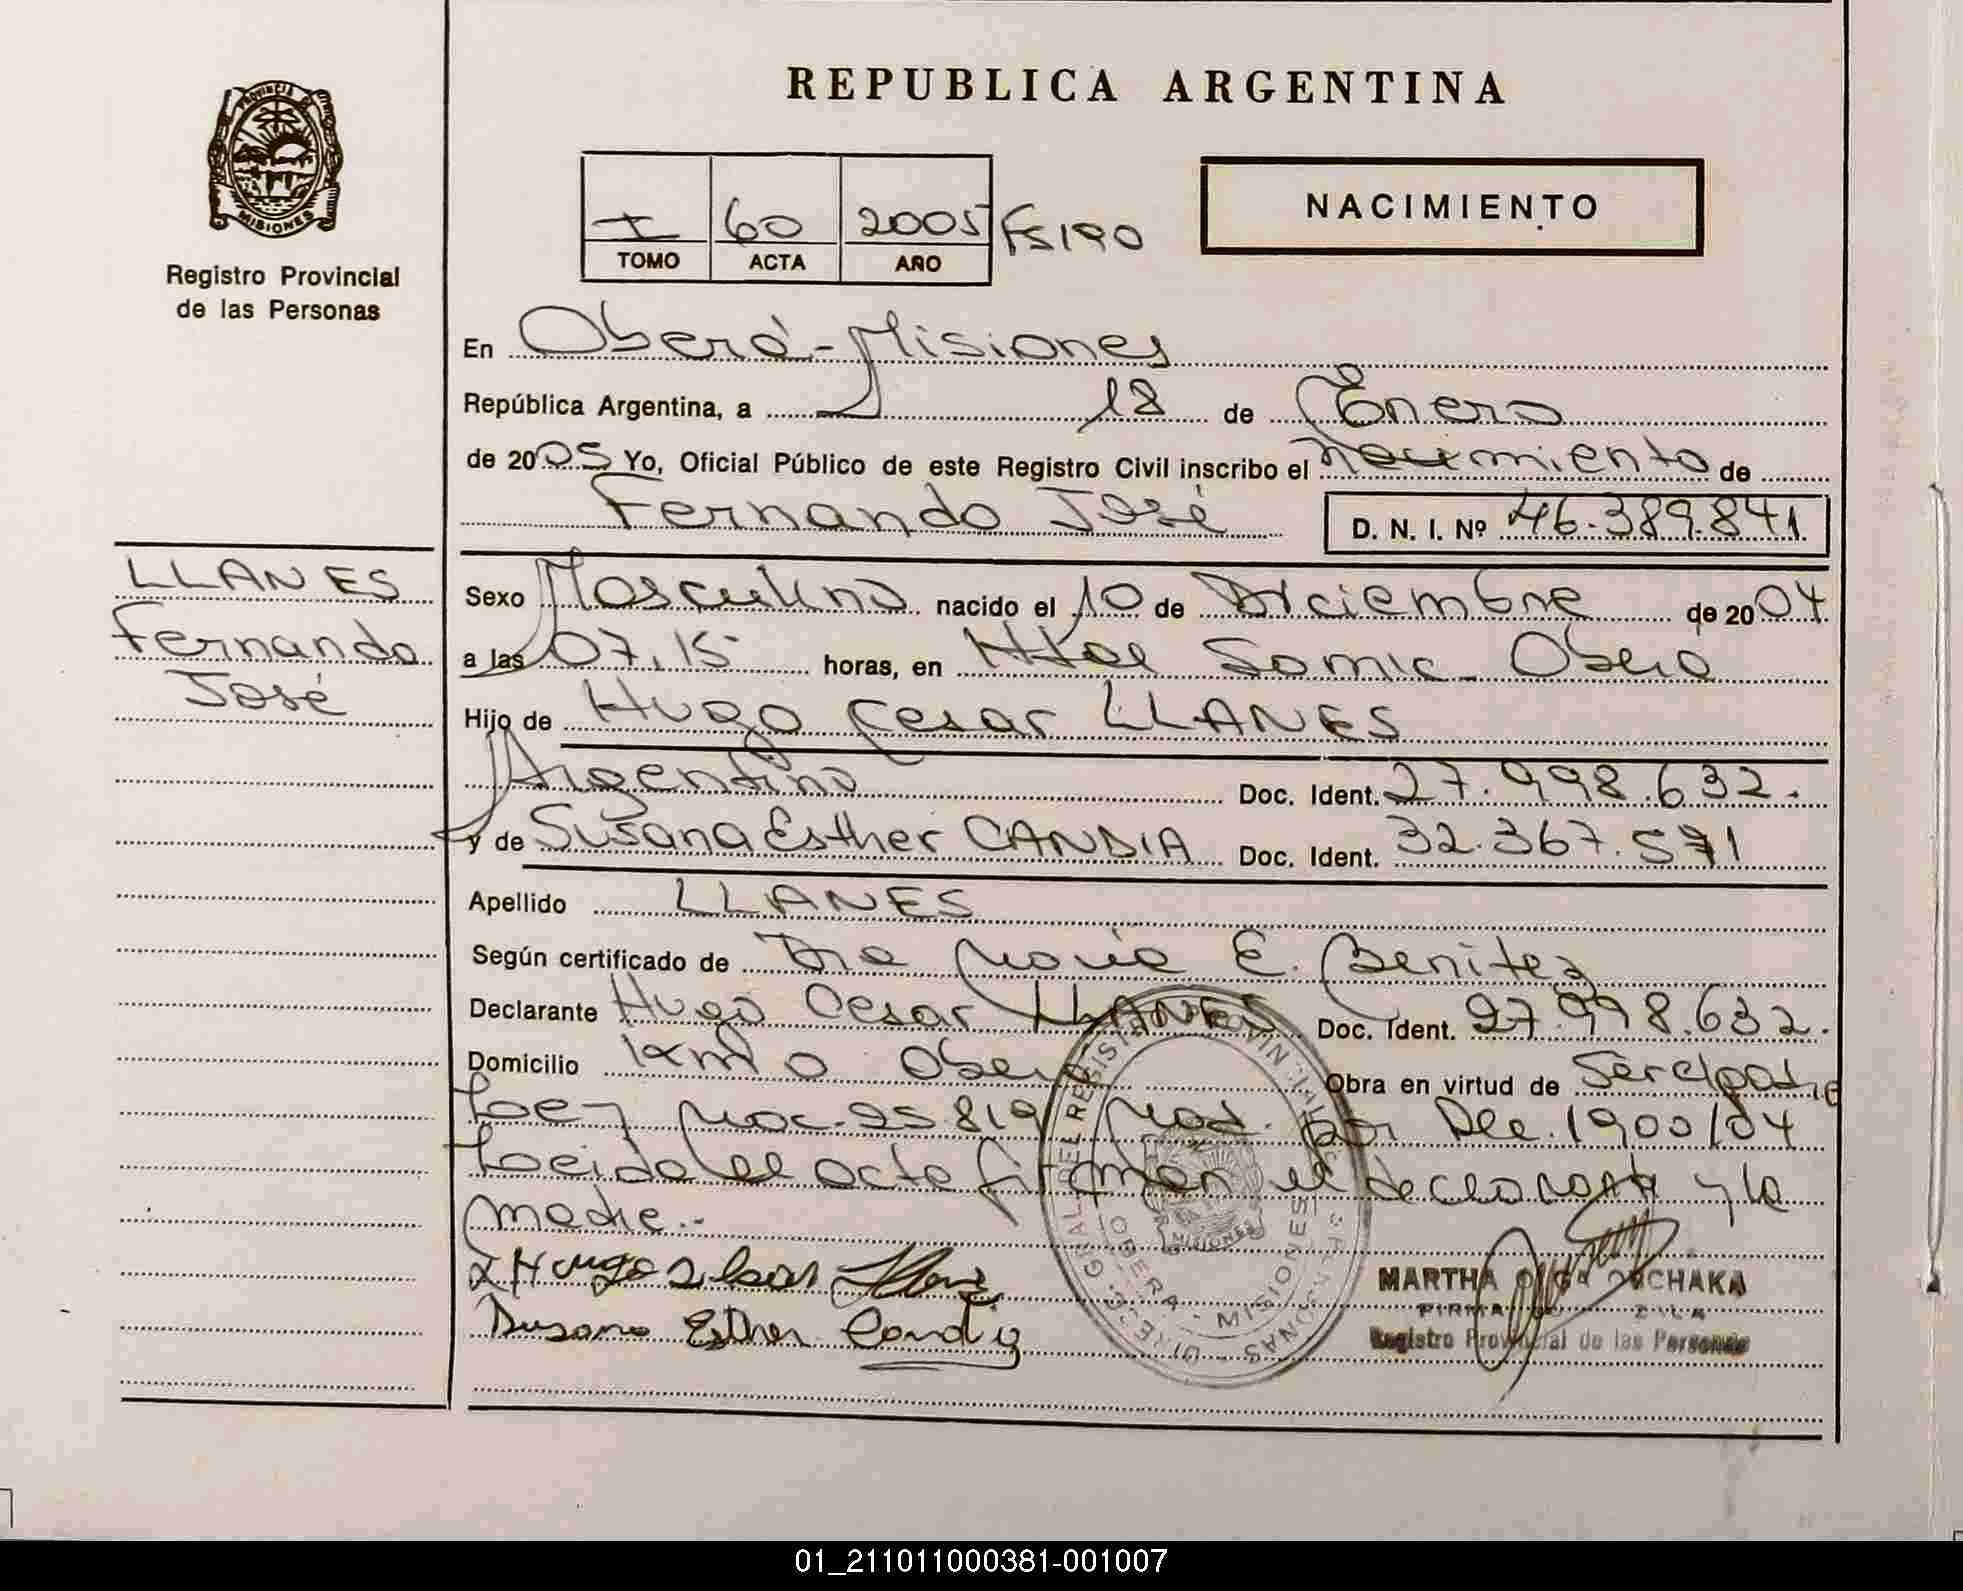 PROVINCIA DE
MISIONES
Registro Provincial
de las Personas
REPUBLICA ARGENTINA
I 60 2005 Fs 190
TOMO ACTA AÑO
NACIMIENTO
En Oberá - Misiones
República Argentina, a 18 de Enero
de 2005 Yo, Oficial Público de este Registro Civil inscribo el nacimiento de
Fernando José D. N. I. Nº 46.389.841
LLANES
Fernando
José
Sexo Masculino nacido el 10 de Diciembre de 2004
a las 07,15 horas, en Htal Samic - Oberá
Hijo de Hugo Cesar LLANES
Argentino Doc. Ident. 27.998.632.
y de Susana Esther CANDIA Doc. Ident. 32.367.571
Apellido LLANES
Según certificado de Dra María E. Benitez
Declarante Hugo Cesar LLANES Doc. Ident. 27.998.632.
Domicilio Km 0 Oberá Obra en virtud de Ser el padre
Ley Nac. 25819 Mod. por Dec. 1900/04
Leida el acta firman el declarante y la
madre..-
Hugo Cesar Llanes
Susana Esther Candia
MISIONES
OBERA - MISIONES
MARTHA OLGA
Registro Provincial de las Personas
01_211011000381-001007